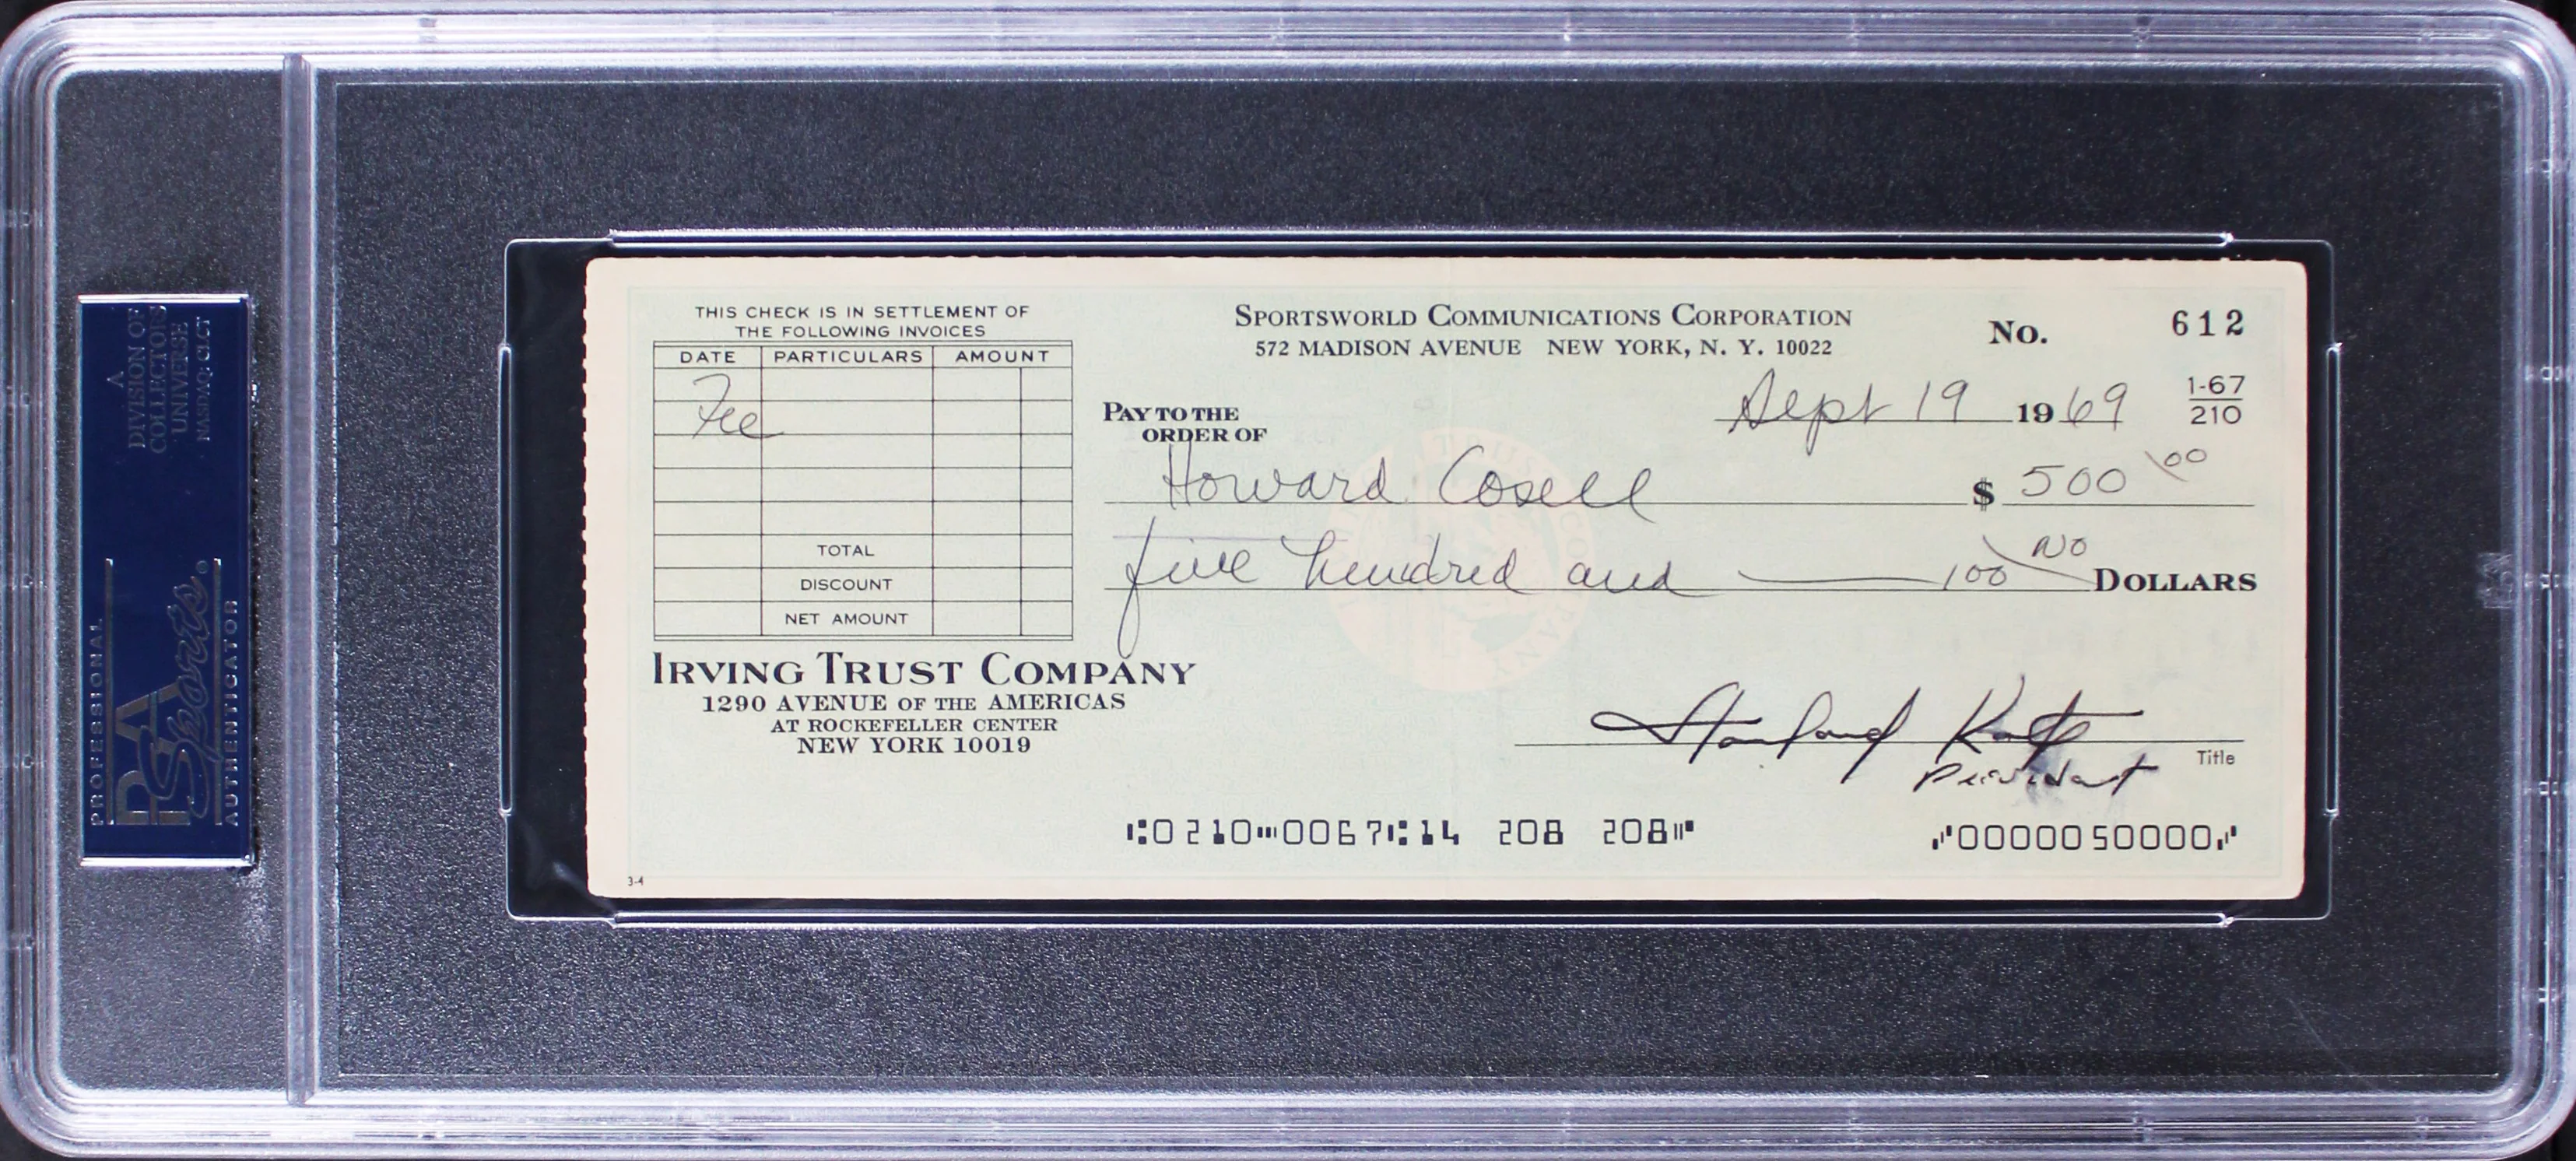 A
DIVISION OF
COLLECTORS
UNIVERSE
NASDAQ: CLCT
PROFESSIONAL
PSA
Sports®
AUTHENTICATOR
THIS CHECK IS IN SETTLEMENT OF
THE FOLLOWING INVOICES
DATE PARTICULARS AMOUNT
Fee
TOTAL
DISCOUNT
NET AMOUNT
IRVING TRUST COMPANY
1290 AVENUE OF THE AMERICAS
AT ROCKEFELLER CENTER
NEW YORK 10019
3-4
SPORTSWORLD COMMUNICATIONS CORPORATION
572 MADISON AVENUE NEW YORK, N. Y. 10022
No. 612
Sept 19 1969
1-67
210
PAY TO THE
ORDER OF
Howard Cosell $ 500 00
five hundred and NO/100 DOLLARS
Stanford Katz
President
Title
⑆0210⑉0067⑆14 208 208⑈ ⑇0000050000⑇